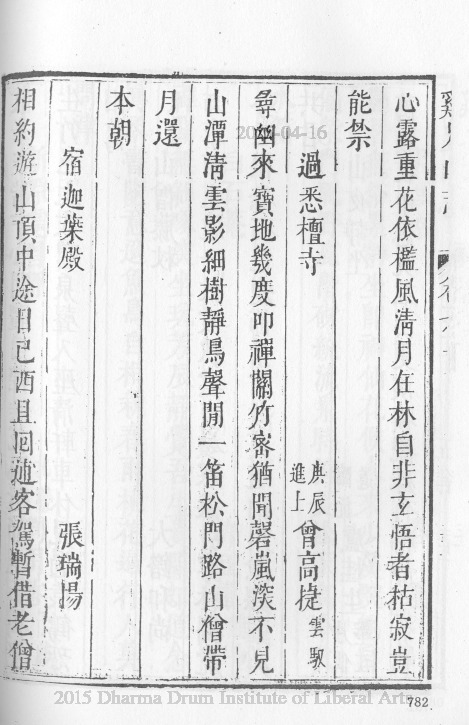 心露重花依檻風清月在林自非玄悟者枯寂豈
能禁
過悉檀寺 庚辰進上 曾高捷 雲馭
尋幽來寶地幾度叩禪關竹密猶聞磬嵐深不見
山潭清雲影細樹靜鳥聲閒一笛松門路山僧帶
月還
本朝
宿迦葉殿 張瑞
相約遊山頂中途日已西且回逋客駕暫借老僧
782
2015 Dharma Drum Institute of Liberal Arts